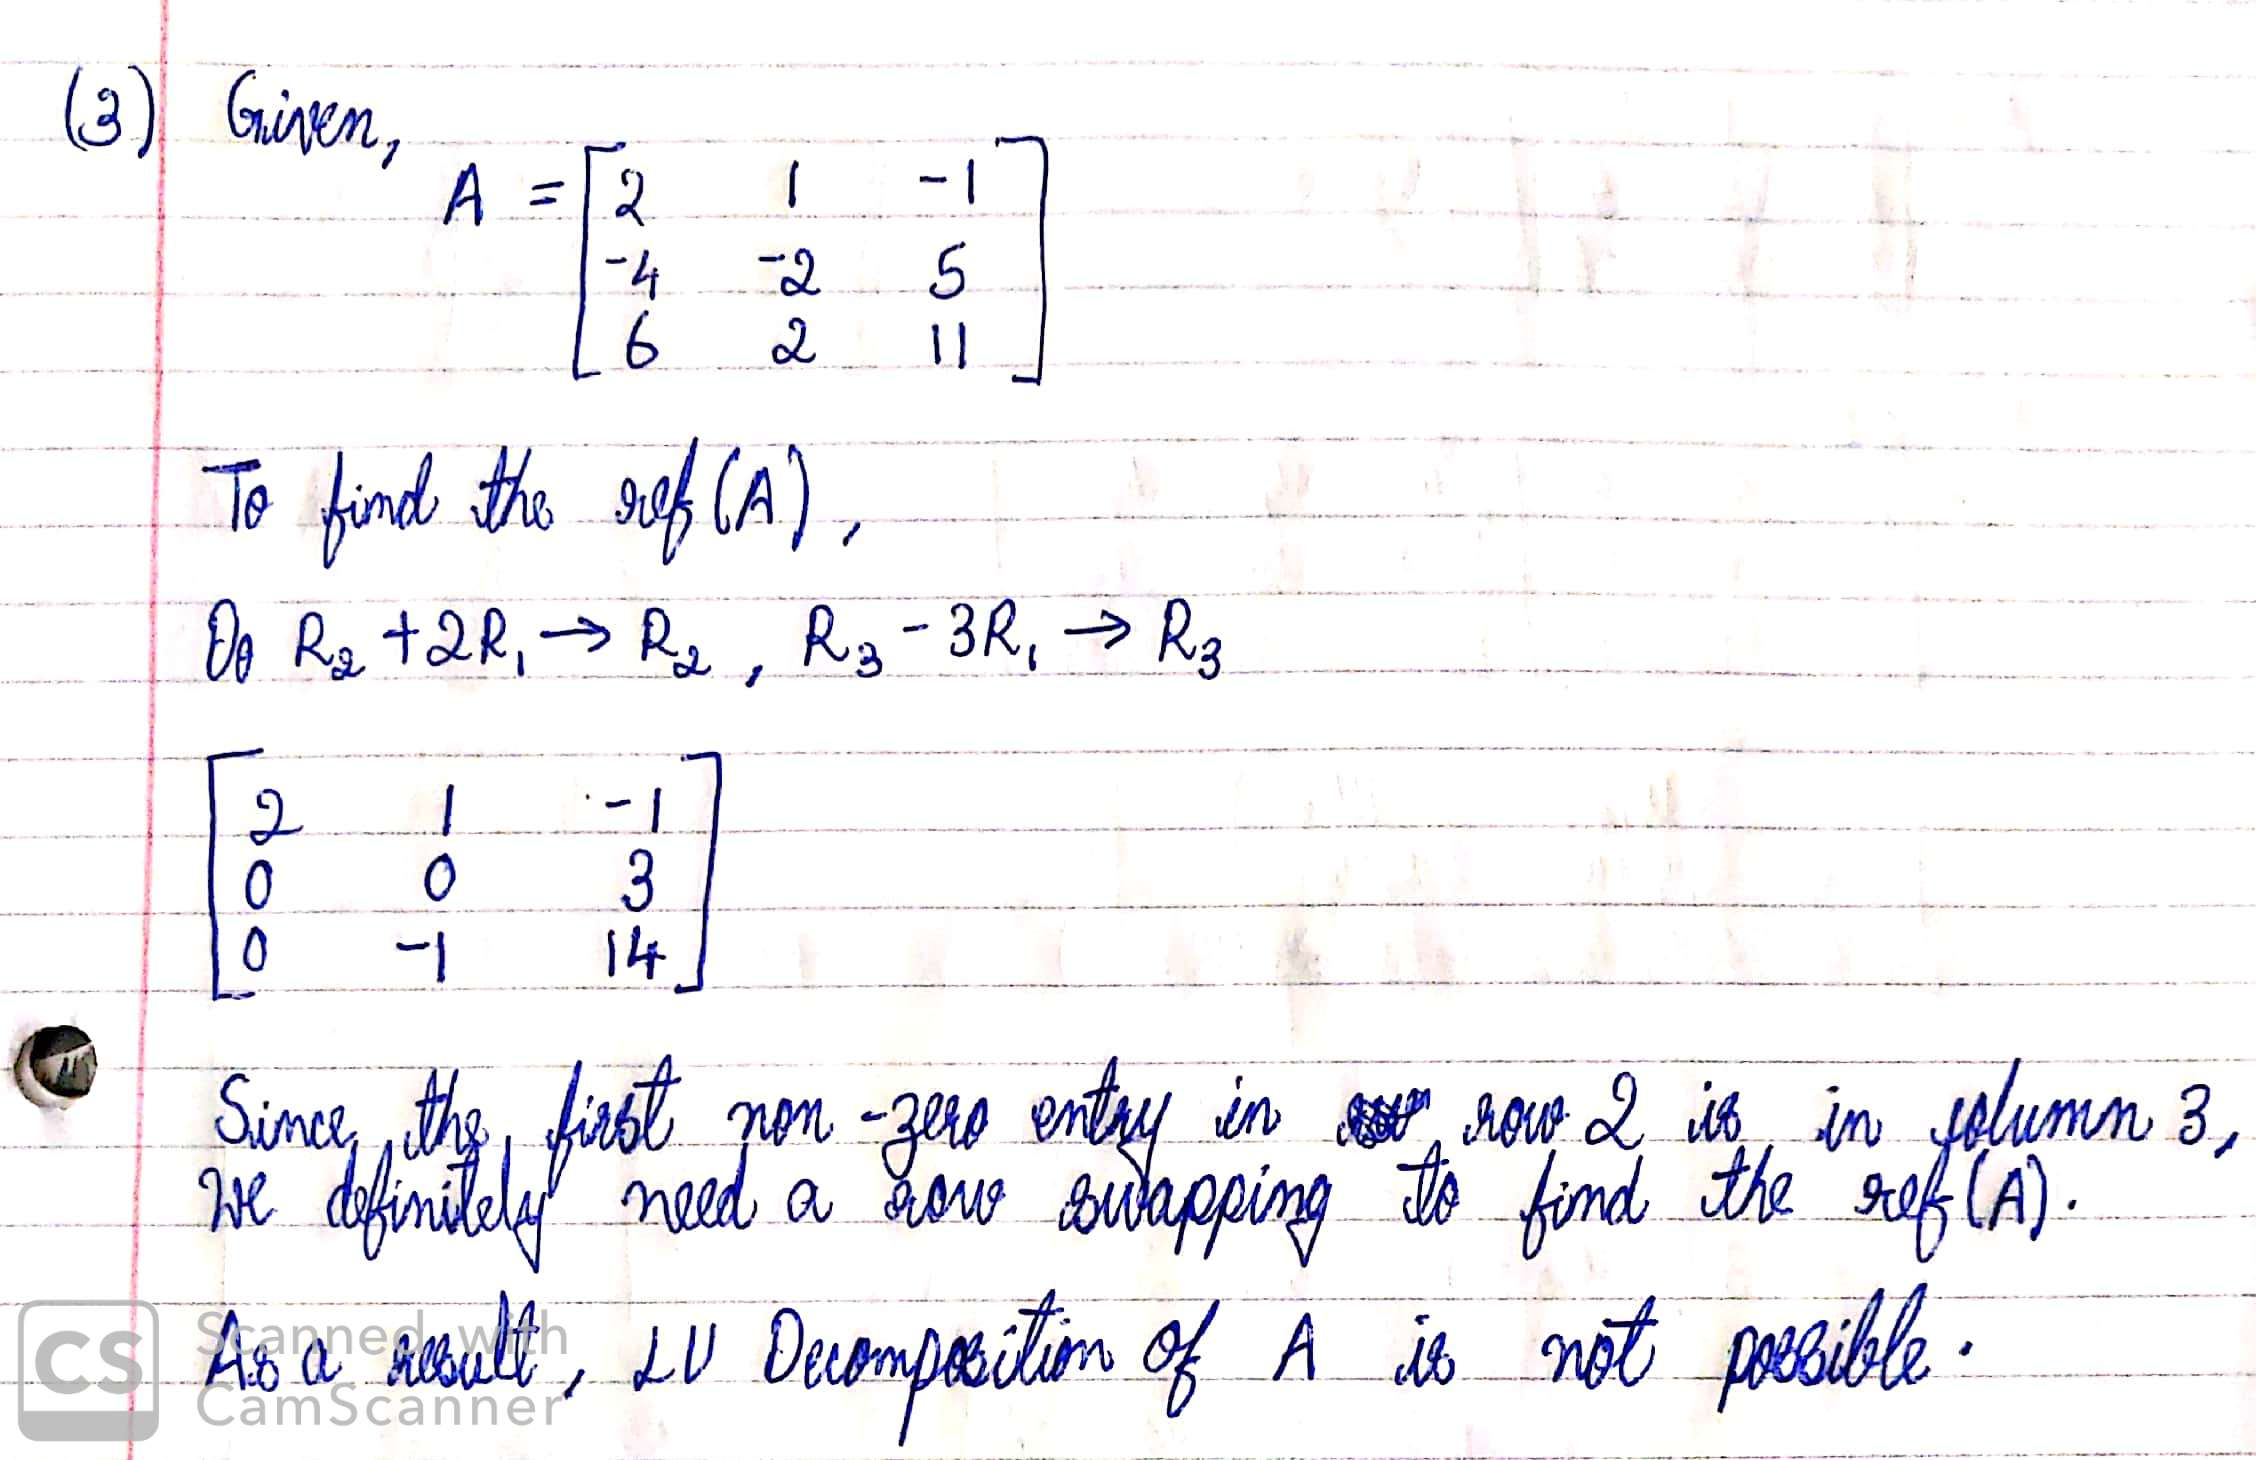 (3) Given,
A = [ 2 1 -1
-4 -2 5
6 2 11 ]
To find the ref (A),
Do R₂ + 2R₁ → R₂, R₃ - 3R₁ → R₃
[ 2 1 -1
0 0 3
0 -1 14 ]
Since the first non-zero entry in row 2 is in column 3,
we definitely need a row swapping to find the ref (A).
As a result, LU Decomposition of A is not possible.
CS Scanned with
CamScanner